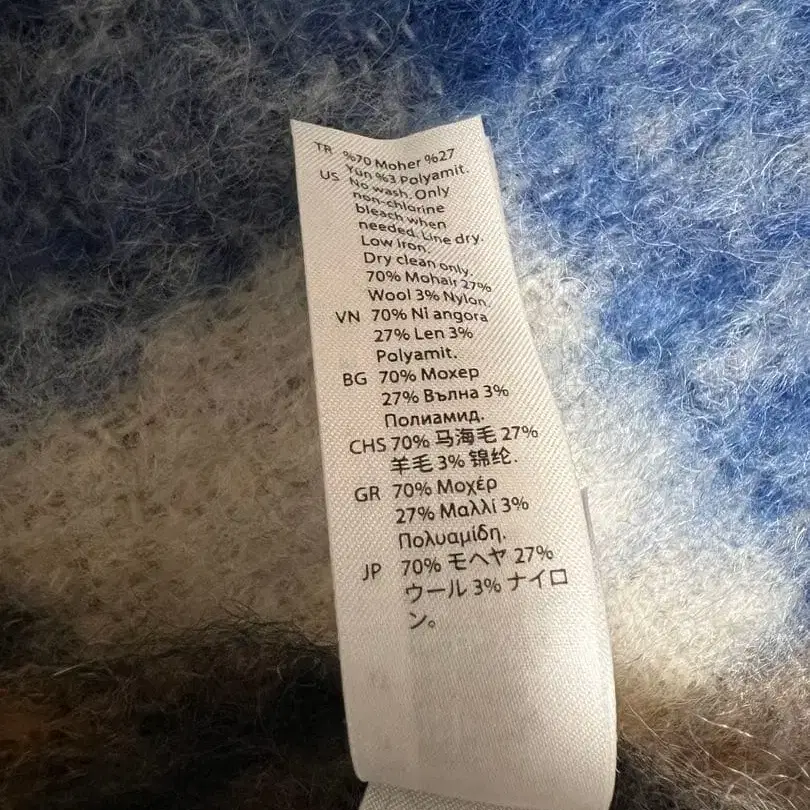 TR %70 Moher %27
Yün %3 Polyamit.
US No wash. Only
non-chlorine
bleach when
needed. Line dry.
Low iron.
Dry clean only.
70% Mohair 27%
Wool 3% Nylon.
VN 70% Nỉ angora
27% Len 3%
Polyamit.
BG 70% Мохер
27% Вълна 3%
Полиамид.
CHS 70% 马海毛 27%
羊毛 3% 锦纶.
GR 70% Μοχέρ
27% Μαλλί 3%
Πολυαμίδη.
JP 70% モヘヤ 27%
ウール 3% ナイロ
ン。